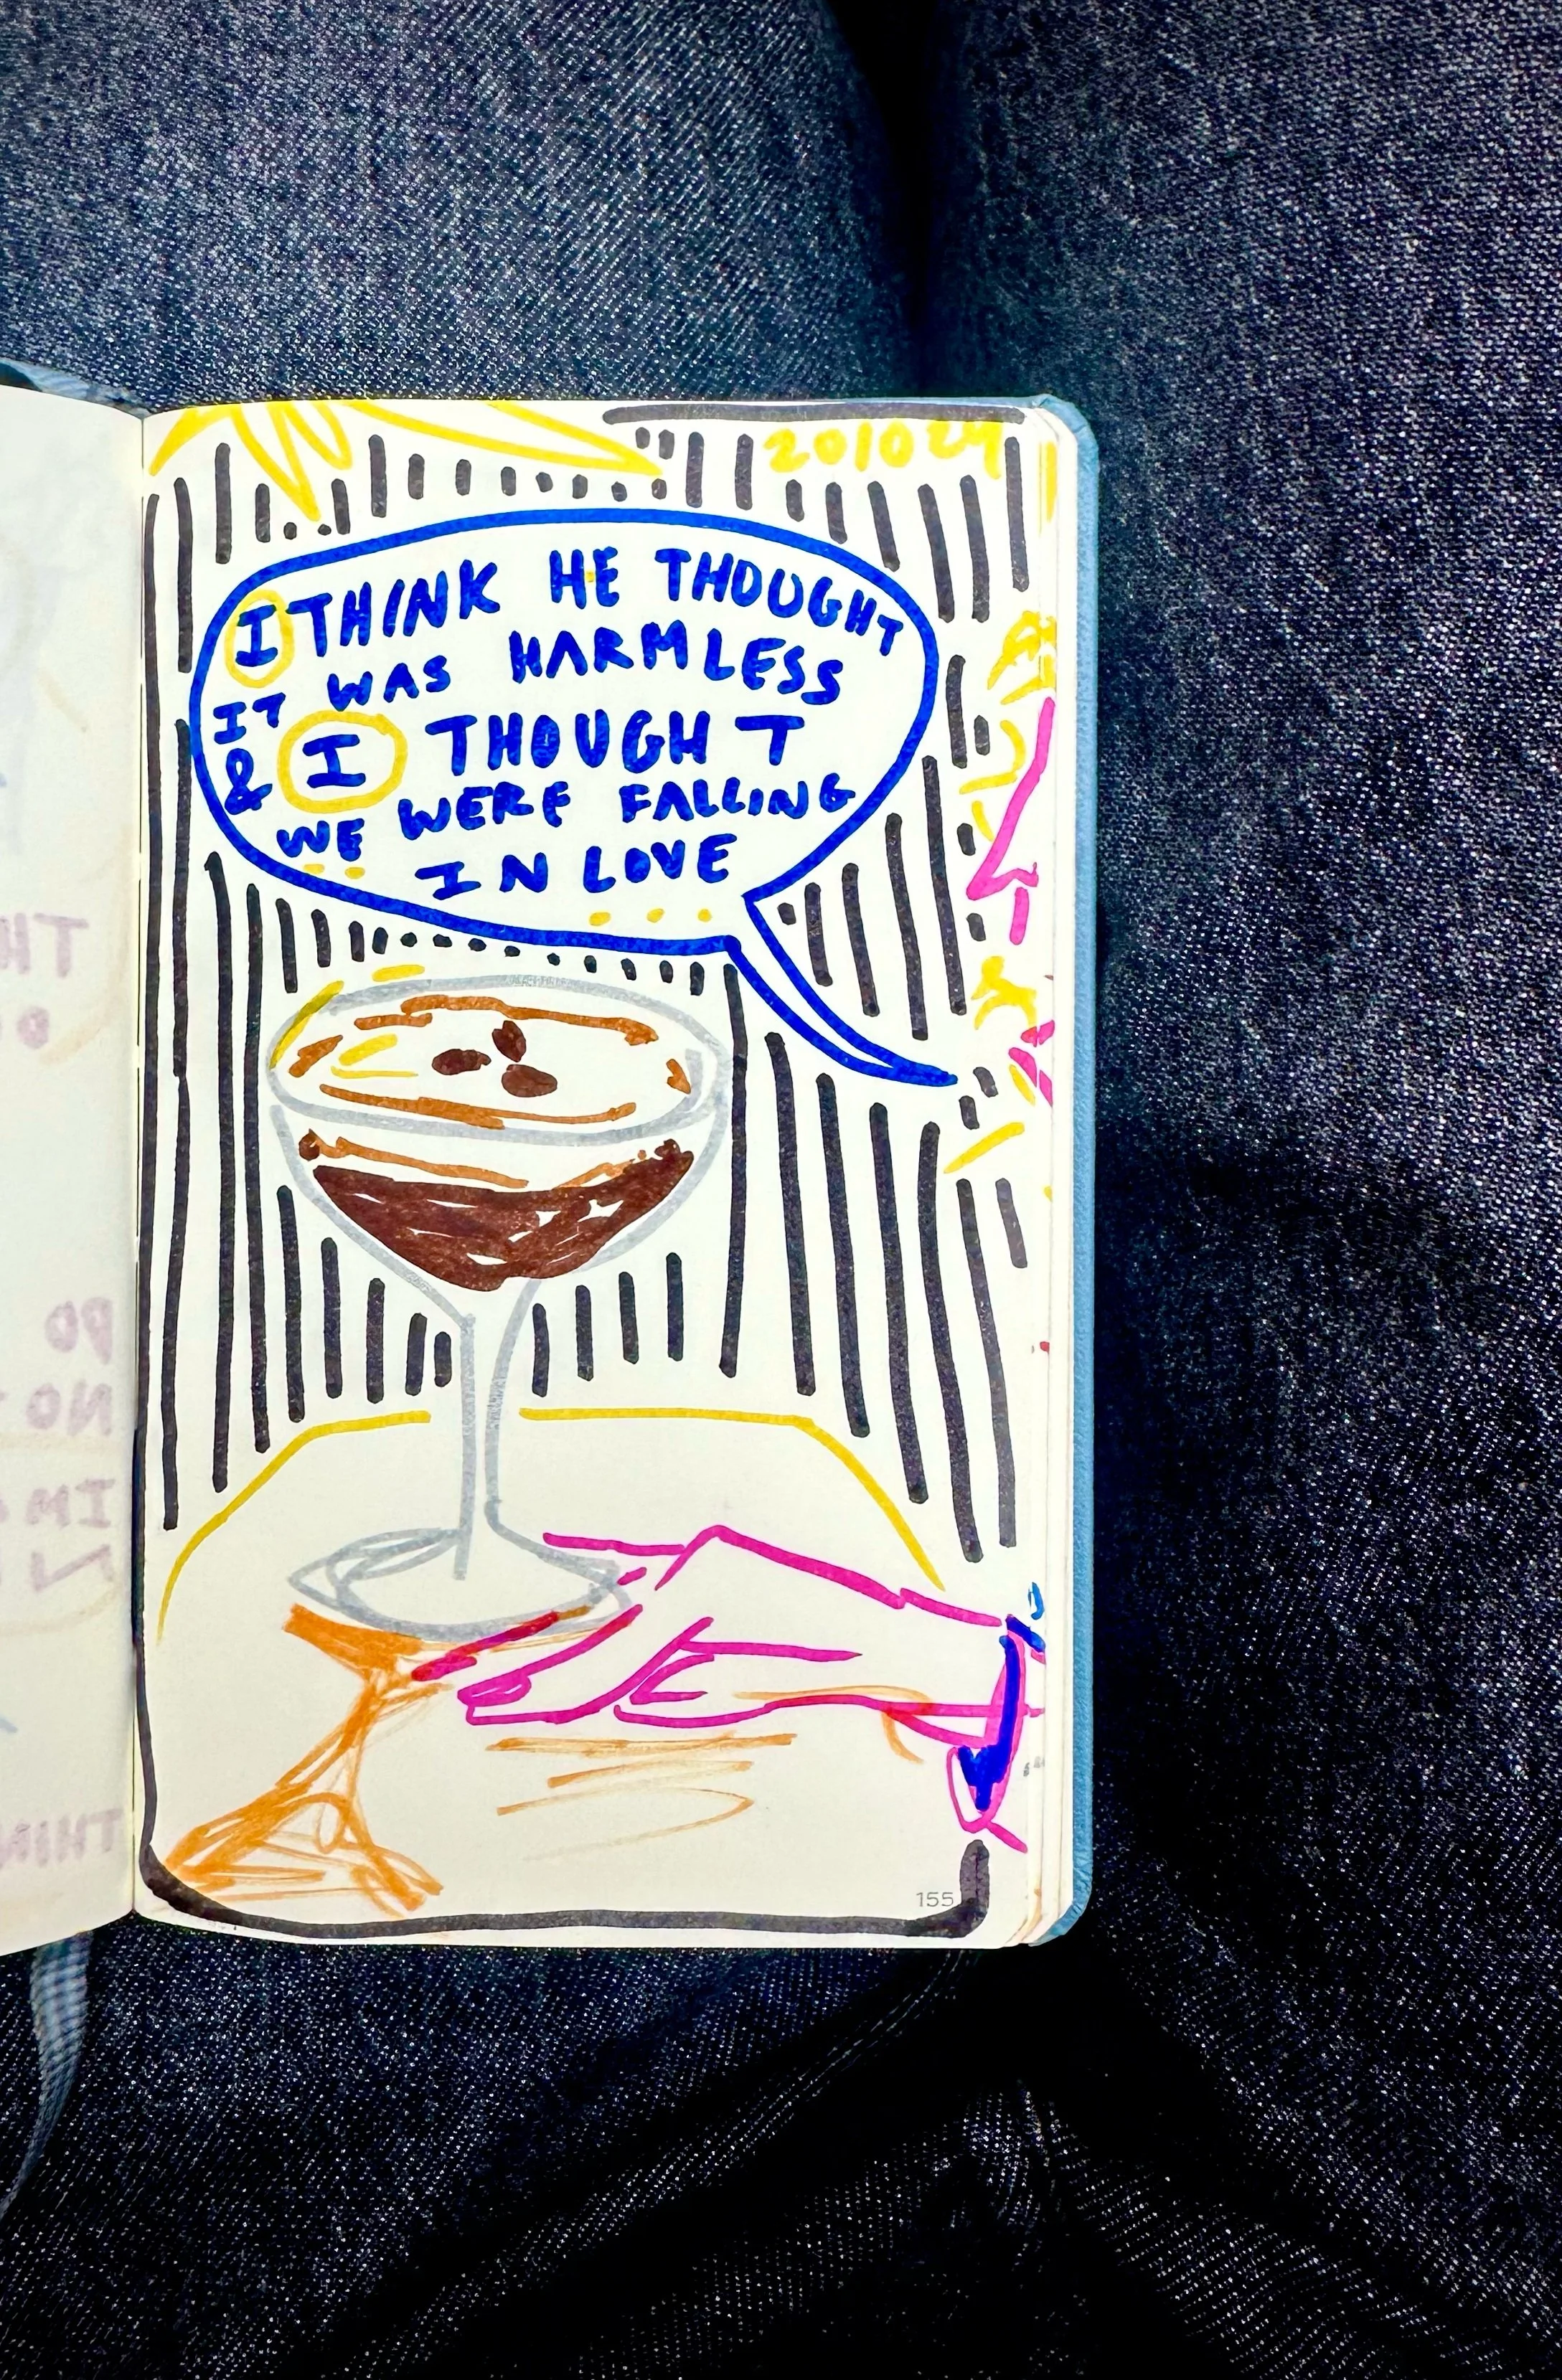 201024
I THINK HE THOUGHT
IT WAS HARMLESS
& I THOUGHT
WE WERE FALLING
IN LOVE
155